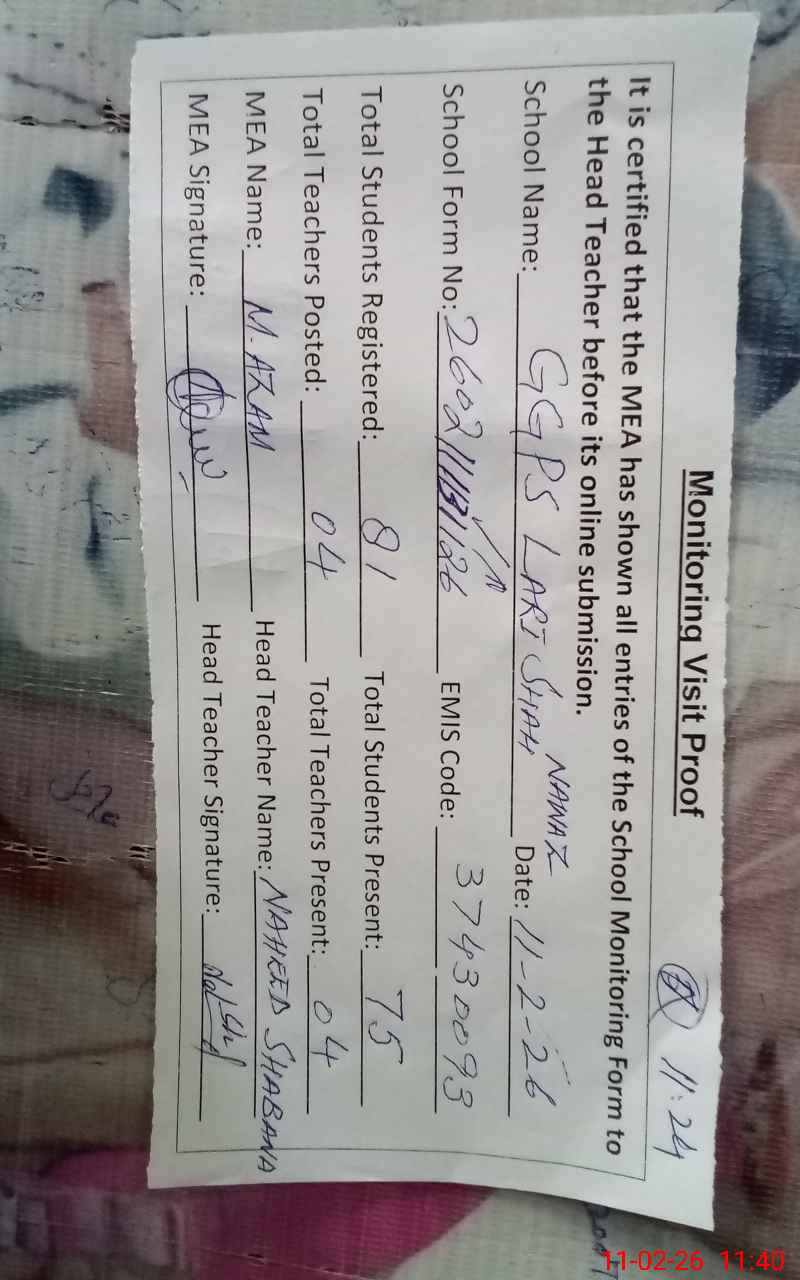 Monitoring Visit Proof
11:24
It is certified that the MEA has shown all entries of the School Monitoring Form to
the Head Teacher before its online submission.
School Name: GGPS LARI SHAH NAWAZ Date: 11-2-26
School Form No: EMIS Code: 37430093
Total Students Registered: 81 Total Students Present: 75
Total Teachers Posted: 04 Total Teachers Present: 04
MEA Name: M. AZAM Head Teacher Name: NAHEED SHABANA
MEA Signature: Head Teacher Signature:
11-02-26 11:40